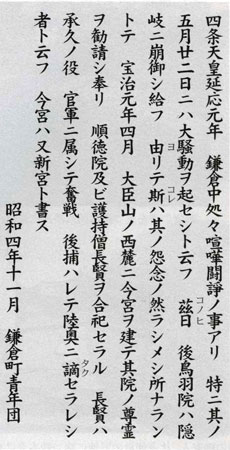 四条天皇延応元年　鎌倉中処々喧嘩闘諍ノ事アリ　特ニ其ノ
五月廿二日ニハ大騒動ヲ起セシト云フ　茲日　後鳥羽院ハ隠
岐ニ崩御シ給フ　由リテ斯ハ其ノ怨念ノ然ラシメシ所ナラン
トテ　宝治元年四月　大臣山ノ西麓ニ今宮ヲ建テ其院ノ尊霊
ヲ勧請シ奉リ　順徳院及ビ護持僧長賢ヲ合祀セラル　長賢ハ
承久ノ役　官軍ニ属シテ奮戦　後捕ハレテ陸奥ニ謫セラレシ
者ト云フ　今宮ハ又新宮ト書ス
昭和四年十一月　鎌倉町青年団
コノヒ
ヨ
コレ
タク